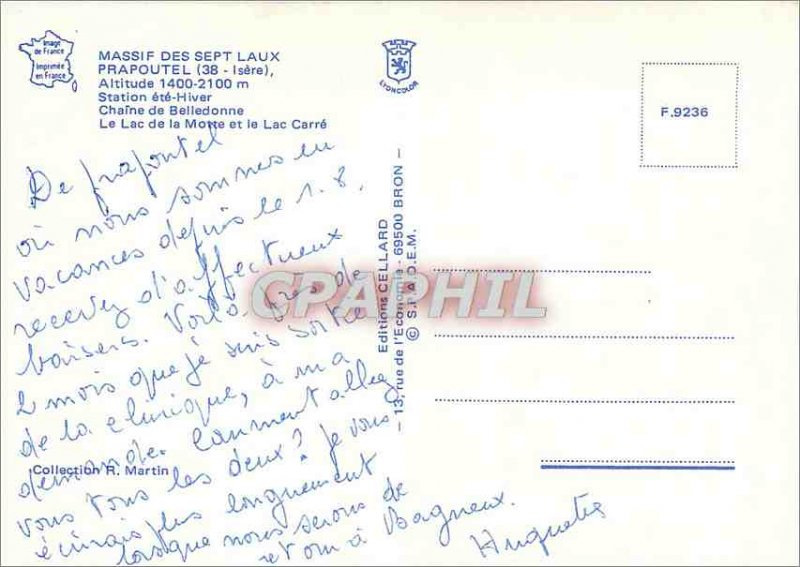 Image
de France
Imprimée
en France
MASSIF DES SEPT LAUX
PRAPOUTEL (38 - Isère),
Altitude 1400-2100 m
Station été-Hiver
Chaîne de Belledonne
Le Lac de la Motte et le Lac Carré
LYONCOLOR
F.9236
De prapoutel
où nous sommes en
vacances depuis le 1.8.
recevez d'affectueux
baisers. Voilà près de
2 mois que je suis sortie
de la clinique, à ma
demande. Comment allez
vous tous les deux? Je vous
écrirais plus longuement
lorsque nous serons de
retour à Bagneux.
Huguette
Collection R. Martin
Editions CELLARD
13, rue de l'Economie - 69500 BRON -
© S.P.A.D.E.M.
CPAPHIL